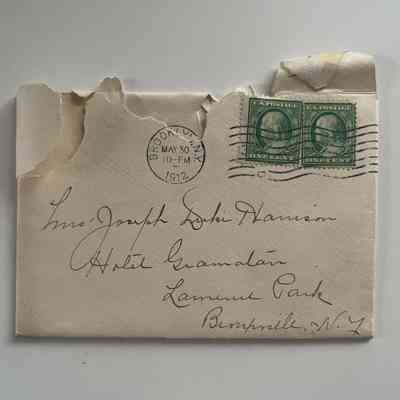 U.S.POSTAGE
U.S.POSTAGE
BROOKLYN, N.Y.
MAY 30
10-PM
1912
ONE CENT
ONE CENT
Mrs Joseph Duke Harrison
Hotel Gramatan
Lawrence Park
Bronxville, N.Y.